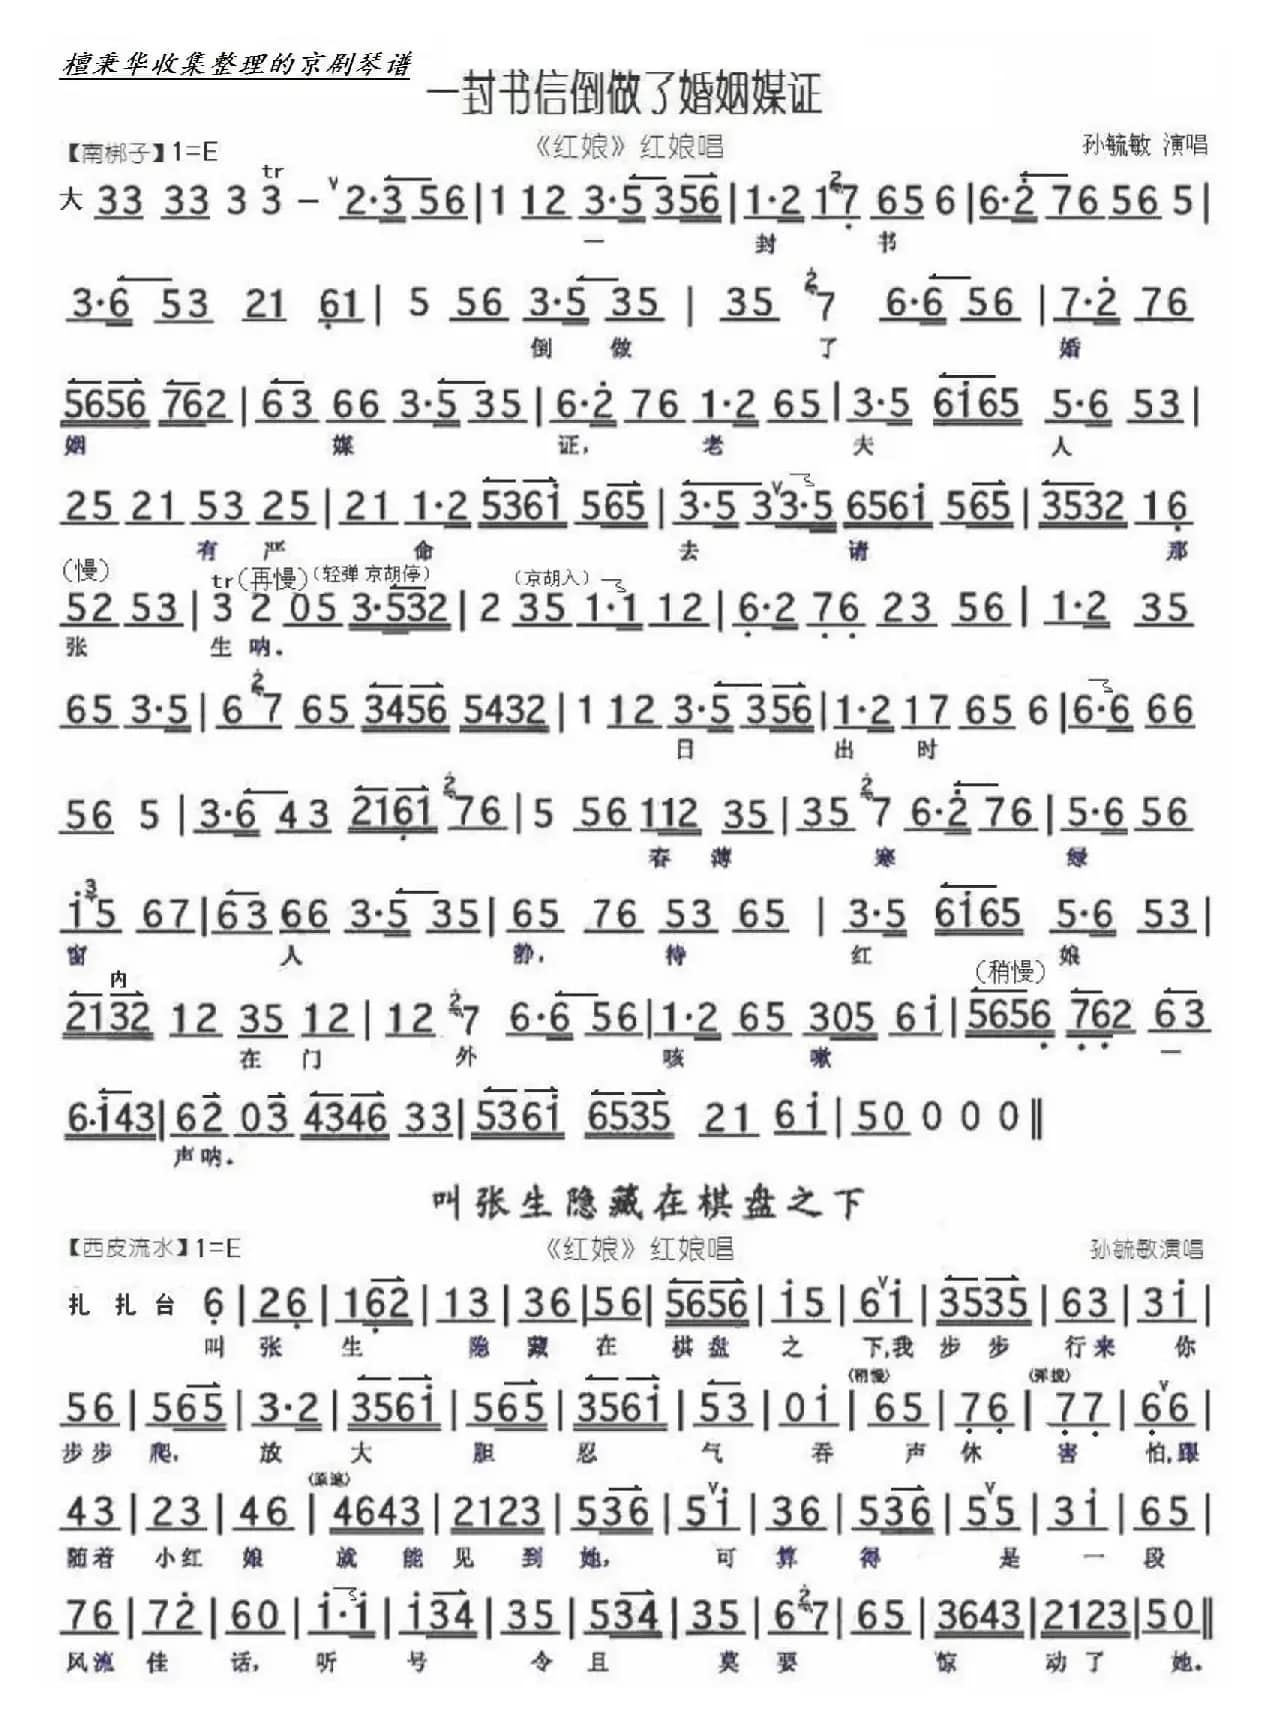 檀秉华收集整理的京剧琴谱
一封书信倒做了婚姻媒证
【南梆子】1=E 《红娘》红娘唱 孙毓敏 演唱
tr
大 33 33 3 3 – ∨ 2·3 56 | 1 12 3·5 356 | 1·2 17 65 6 | 6·2 76 56 5 |
一 封 书
3·6 53 21 61 | 5 56 3·5 35 | 35 7 6·6 56 | 7·2 76
倒 做 了 婚
5656 762 | 63 66 3·5 35 | 6·2 76 1·2 65 | 3·5 6i65 5·6 53 |
姻 媒 证, 老 夫 人
25 21 53 25 | 21 1·2 536i 565 | 3·5 33·5 656i 565 | 3532 16
有 严 命 去 请 那
(慢) tr(再慢)(轻弹 京胡停) (京胡入)
52 53 | 3 2 05 3·532 | 2 35 1·1 12 | 6·2 76 23 56 | 1·2 35
张 生 呐.
65 3·5 | 6 7 65 3456 5432 | 1 12 3·5 356 | 1·2 17 65 6 | 6·6 66
日 出 时
56 5 | 3·6 43 2161 76 | 5 56 112 35 | 35 7 6·2 76 | 5·6 56
春 薄 寒 绿
i5 67 | 63 66 3·5 35 | 65 76 53 65 | 3·5 6i65 5·6 53 |
窗 人 静, 待 红 娘
内 (稍慢)
2132 12 35 12 | 12 7 6·6 56 | 1·2 65 305 6i | 5656 762 63
在 门 外 咳 嗽 一
6·i43 | 62 03 4346 33 | 536i 6535 21 6i | 50 0 0 0 ‖
声 呐.
叫张生隐藏在棋盘之下
【西皮流水】1=E 《红娘》红娘唱 孙毓敏演唱
扎 扎 台 6 | 26 | 162 | 13 | 36 | 56 | 5656 | i5 | 6i | 3535 | 63 | 3i |
叫 张 生 隐 藏 在 棋 盘 之 下,我 步 步 行 来 你
(稍慢) (弹拨)
56 | 565 | 3·2 | 356i | 565 | 356i | 53 | 0i | 65 | 76 | 77 | 66 |
步步 爬, 放 大 胆 忍 气 吞 声 休 害 怕,跟
(原速)
43 | 23 | 46 | 4643 | 2123 | 536 | 5i | 36 | 536 | 55 | 3i | 65 |
随着 小红 娘 就 能 见 到 她, 可 算 得 是 一 段
76 | 72 | 60 | i·i | i34 | 35 | 534 | 35 | 67 | 65 | 3643 | 2123 | 50 ‖
风流 佳 话, 听 号 令 且 莫 要 惊 动 了 她.